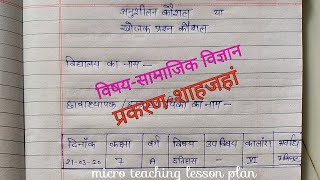 अनुशीलन कौशल या
खोजक प्रश्न कौशल
विद्यालय का नाम -
विषय-सामाजिक विज्ञान
प्रकरण-शाहजहां
का नाम -
दिनाँक कक्षा वर्ग विषय उपविषय कालांश
21-03-20 7 A इतिहास - VI
micro teaching lesson plan